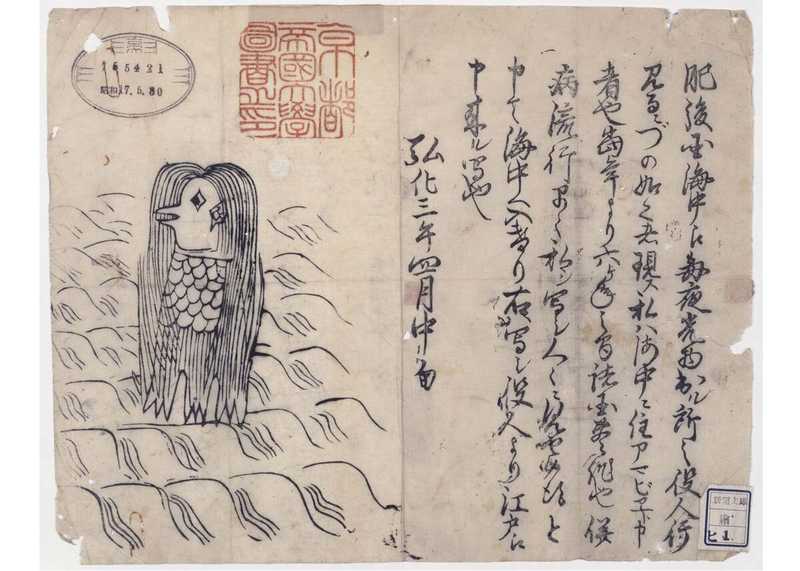 肥後国海中え毎夜光物出ル所之役人行
見るニづの如く者現ス私ハ海中ニ住アマビヱト申
者也當年より六ヶ年之間諸国豊作也併
病流行早々私ヲ写シ人々ニ見セ候得と
申て海中へ入けり右写シ役人より江戸え
申来ル写也
弘化三年四月中旬
京都
帝國大學
圖書之印
昭和17.5.30
新聞文庫
繪
ヒ1